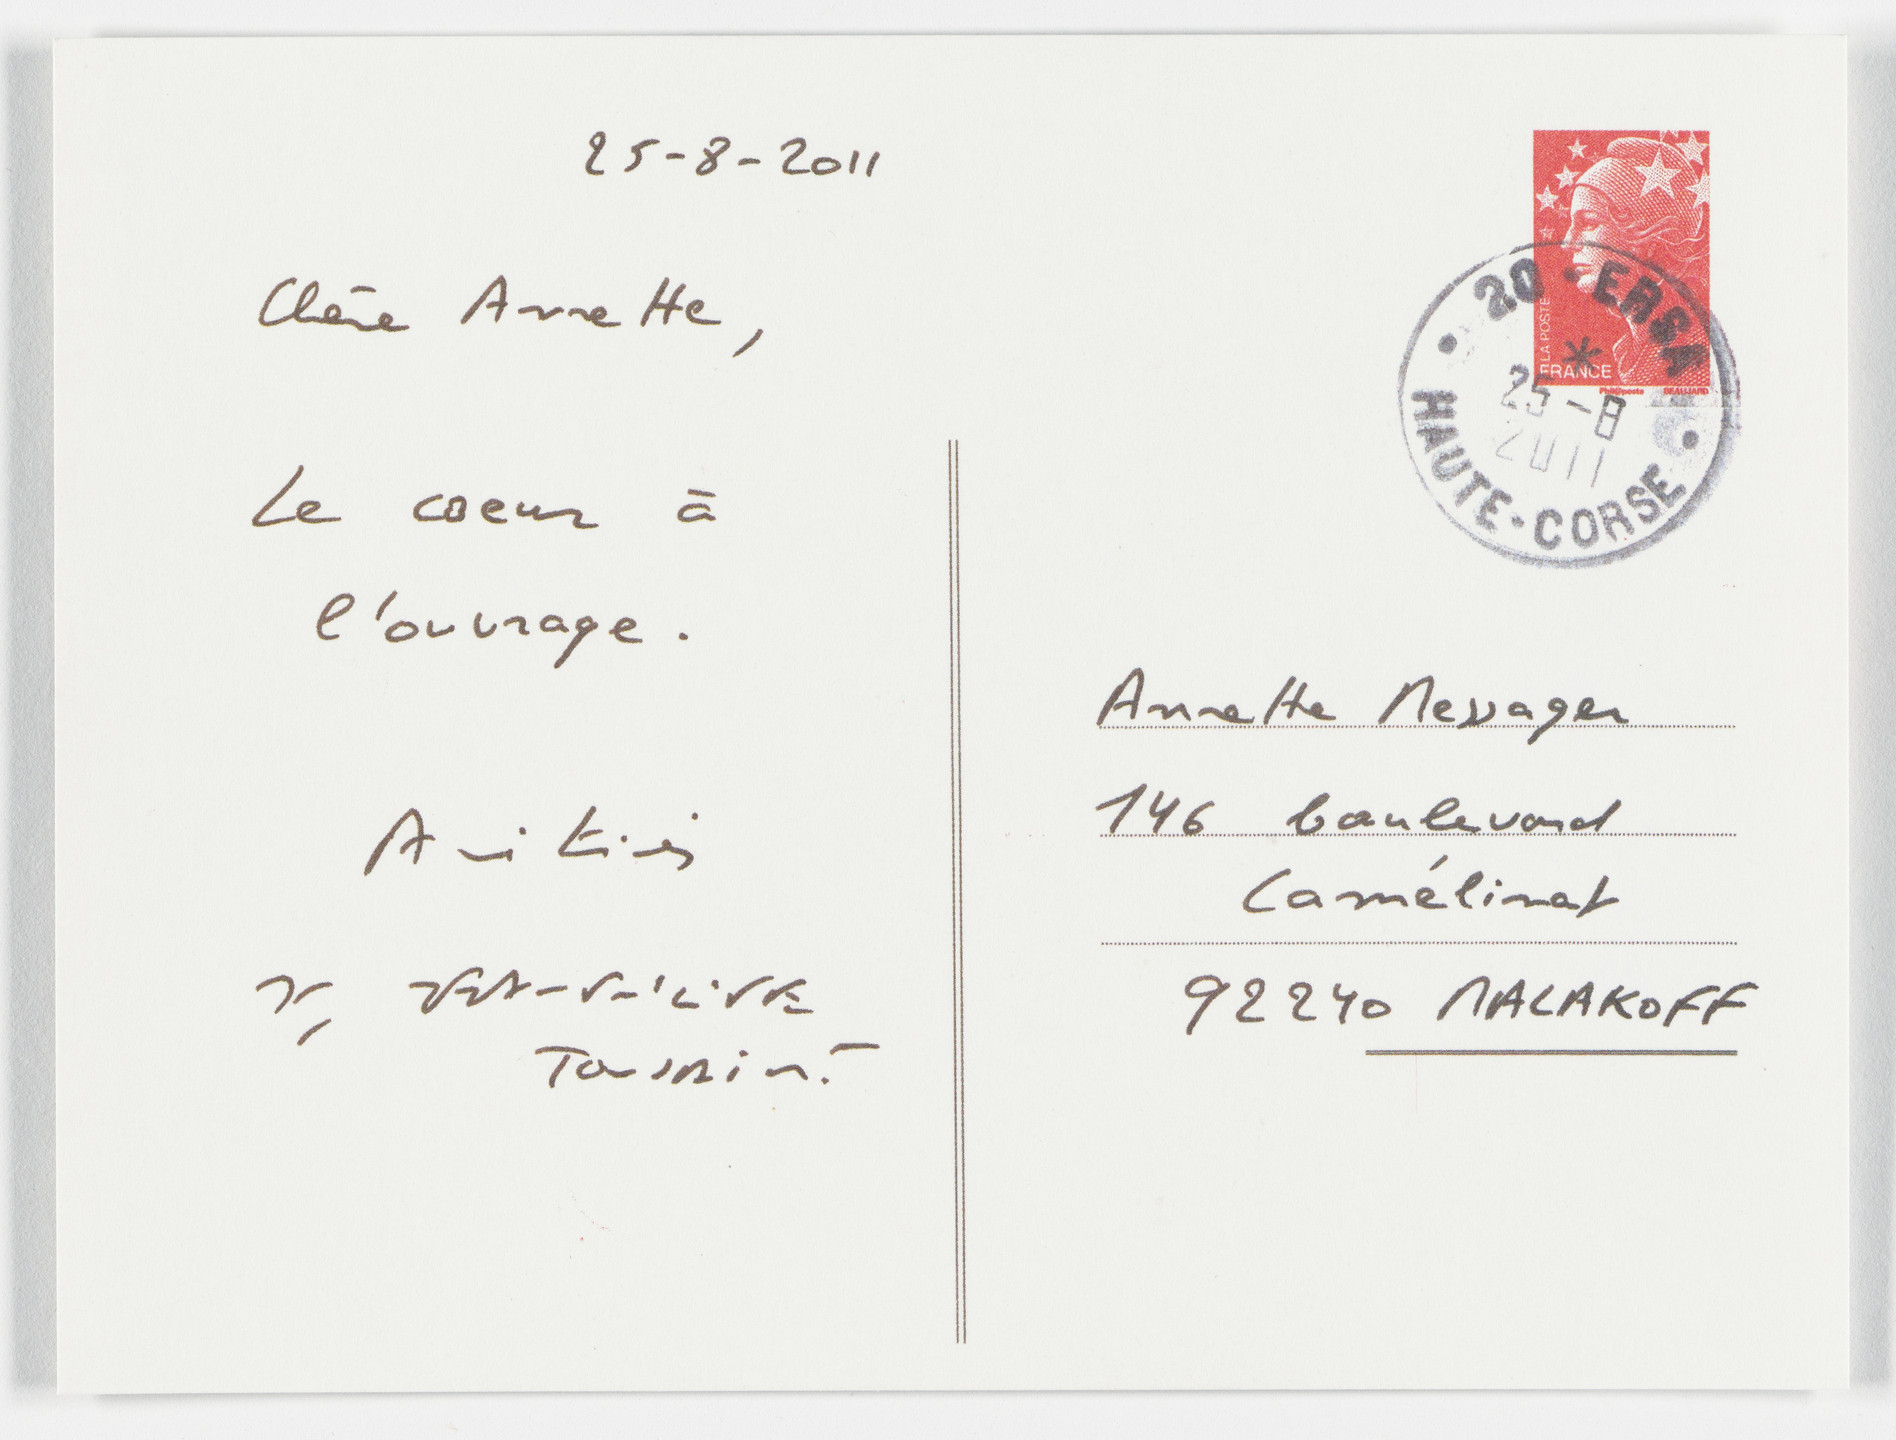 25-8-2011
Chère Annette,
Le coeur à
l'ouvrage.
Amitiés
Toussaint
LA POSTE
FRANCE
Phil@poste BEAUJARD
20 - ERSA
*
25-8
2011
HAUTE-CORSE
Annette Messager
146 boulevard
Camélinat
92240 MALAKOFF